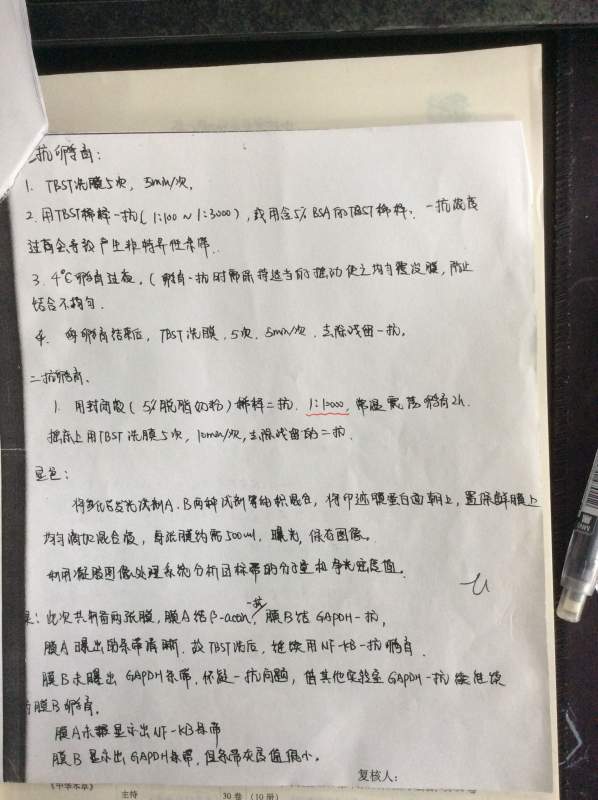 一抗孵育：
1. TBST洗膜5次，5min/次。
2. 用TBST稀释一抗（1:100 ~ 1:3000），或用含5% BSA的TBST稀释。一抗浓度
过高会导致产生非特异性条带。
3. 4℃孵育过夜，（孵育一抗时需保持适当的摇动使之均匀覆没膜，防止
结合不均匀.
4. 孵育结束后，TBST洗膜，5次，5min/次，去除残留一抗。
二抗孵育、
1. 用封闭液（5%脱脂奶粉）稀释二抗，1:1000，常温震荡孵育2h.
摇床上用TBST洗膜5次，10min/次，去除残留的二抗.
显色：
将化发光试剂A、B两种试剂等体积混合，将印迹膜蛋白面朝上，置保鲜膜上
均匀滴加混合液，每张膜约需500ul，曝光，保存图像。
利用凝胶图像处理系统分析目标带的分子量和净光密度值。
果：此次共制备两张膜，膜A结β-actin一抗，膜B结GAPDH一抗，
膜A曝出的条带清晰。故TBST洗后，继续用NF-KB一抗孵育.
膜B未曝出GAPDH条带，怀疑一抗问题，借其他实验室GAPDH一抗继续
膜B孵育.
膜A未显示出NF-KB条带
膜B显示出GAPDH条带，但条带灰度值很小。
复核人：
《中华水京》
主持
30卷（10册）